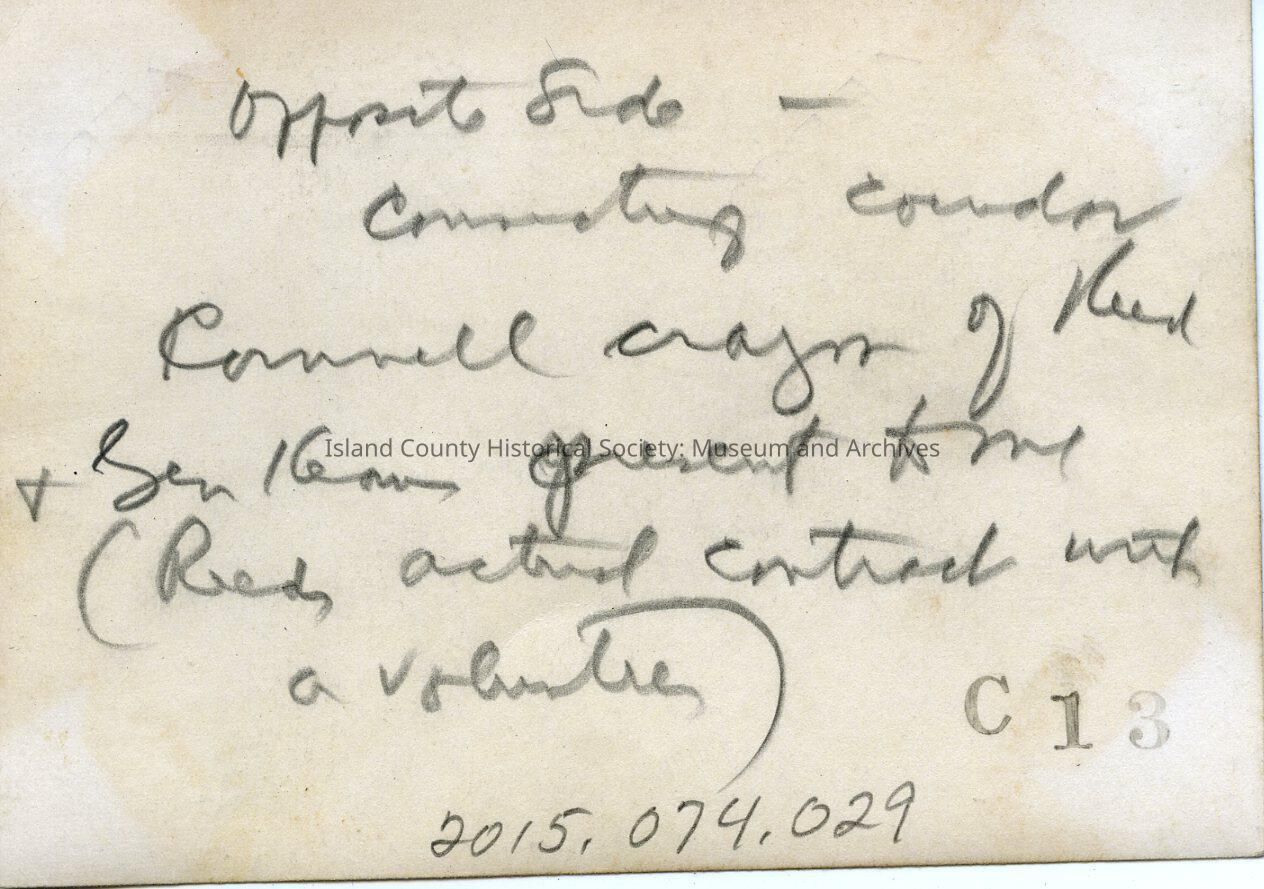 Opposite Side —
Connecting corridor
Cornwell crayon of Reed
+ Gen Kean present to me
Island County Historical Society: Museum and Archives
(Reeds actual contract with
a volunteer)
C 1 3
2015.074.029